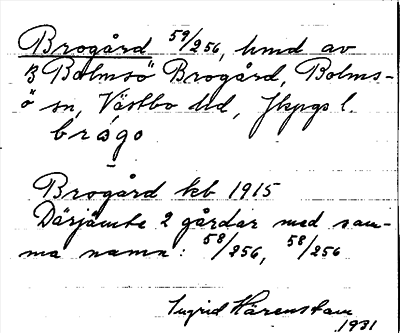 Brogård 59/256, hmd av
B Bolmsö Brogård, Bolms-
ö sn, Västbo hd, Jkpgs l.
brågo
Brogård kb 1915
Därjämte 2 gårdar med sam-
ma namn: 58/256, 58/256
Ingrid Härenstam
1931